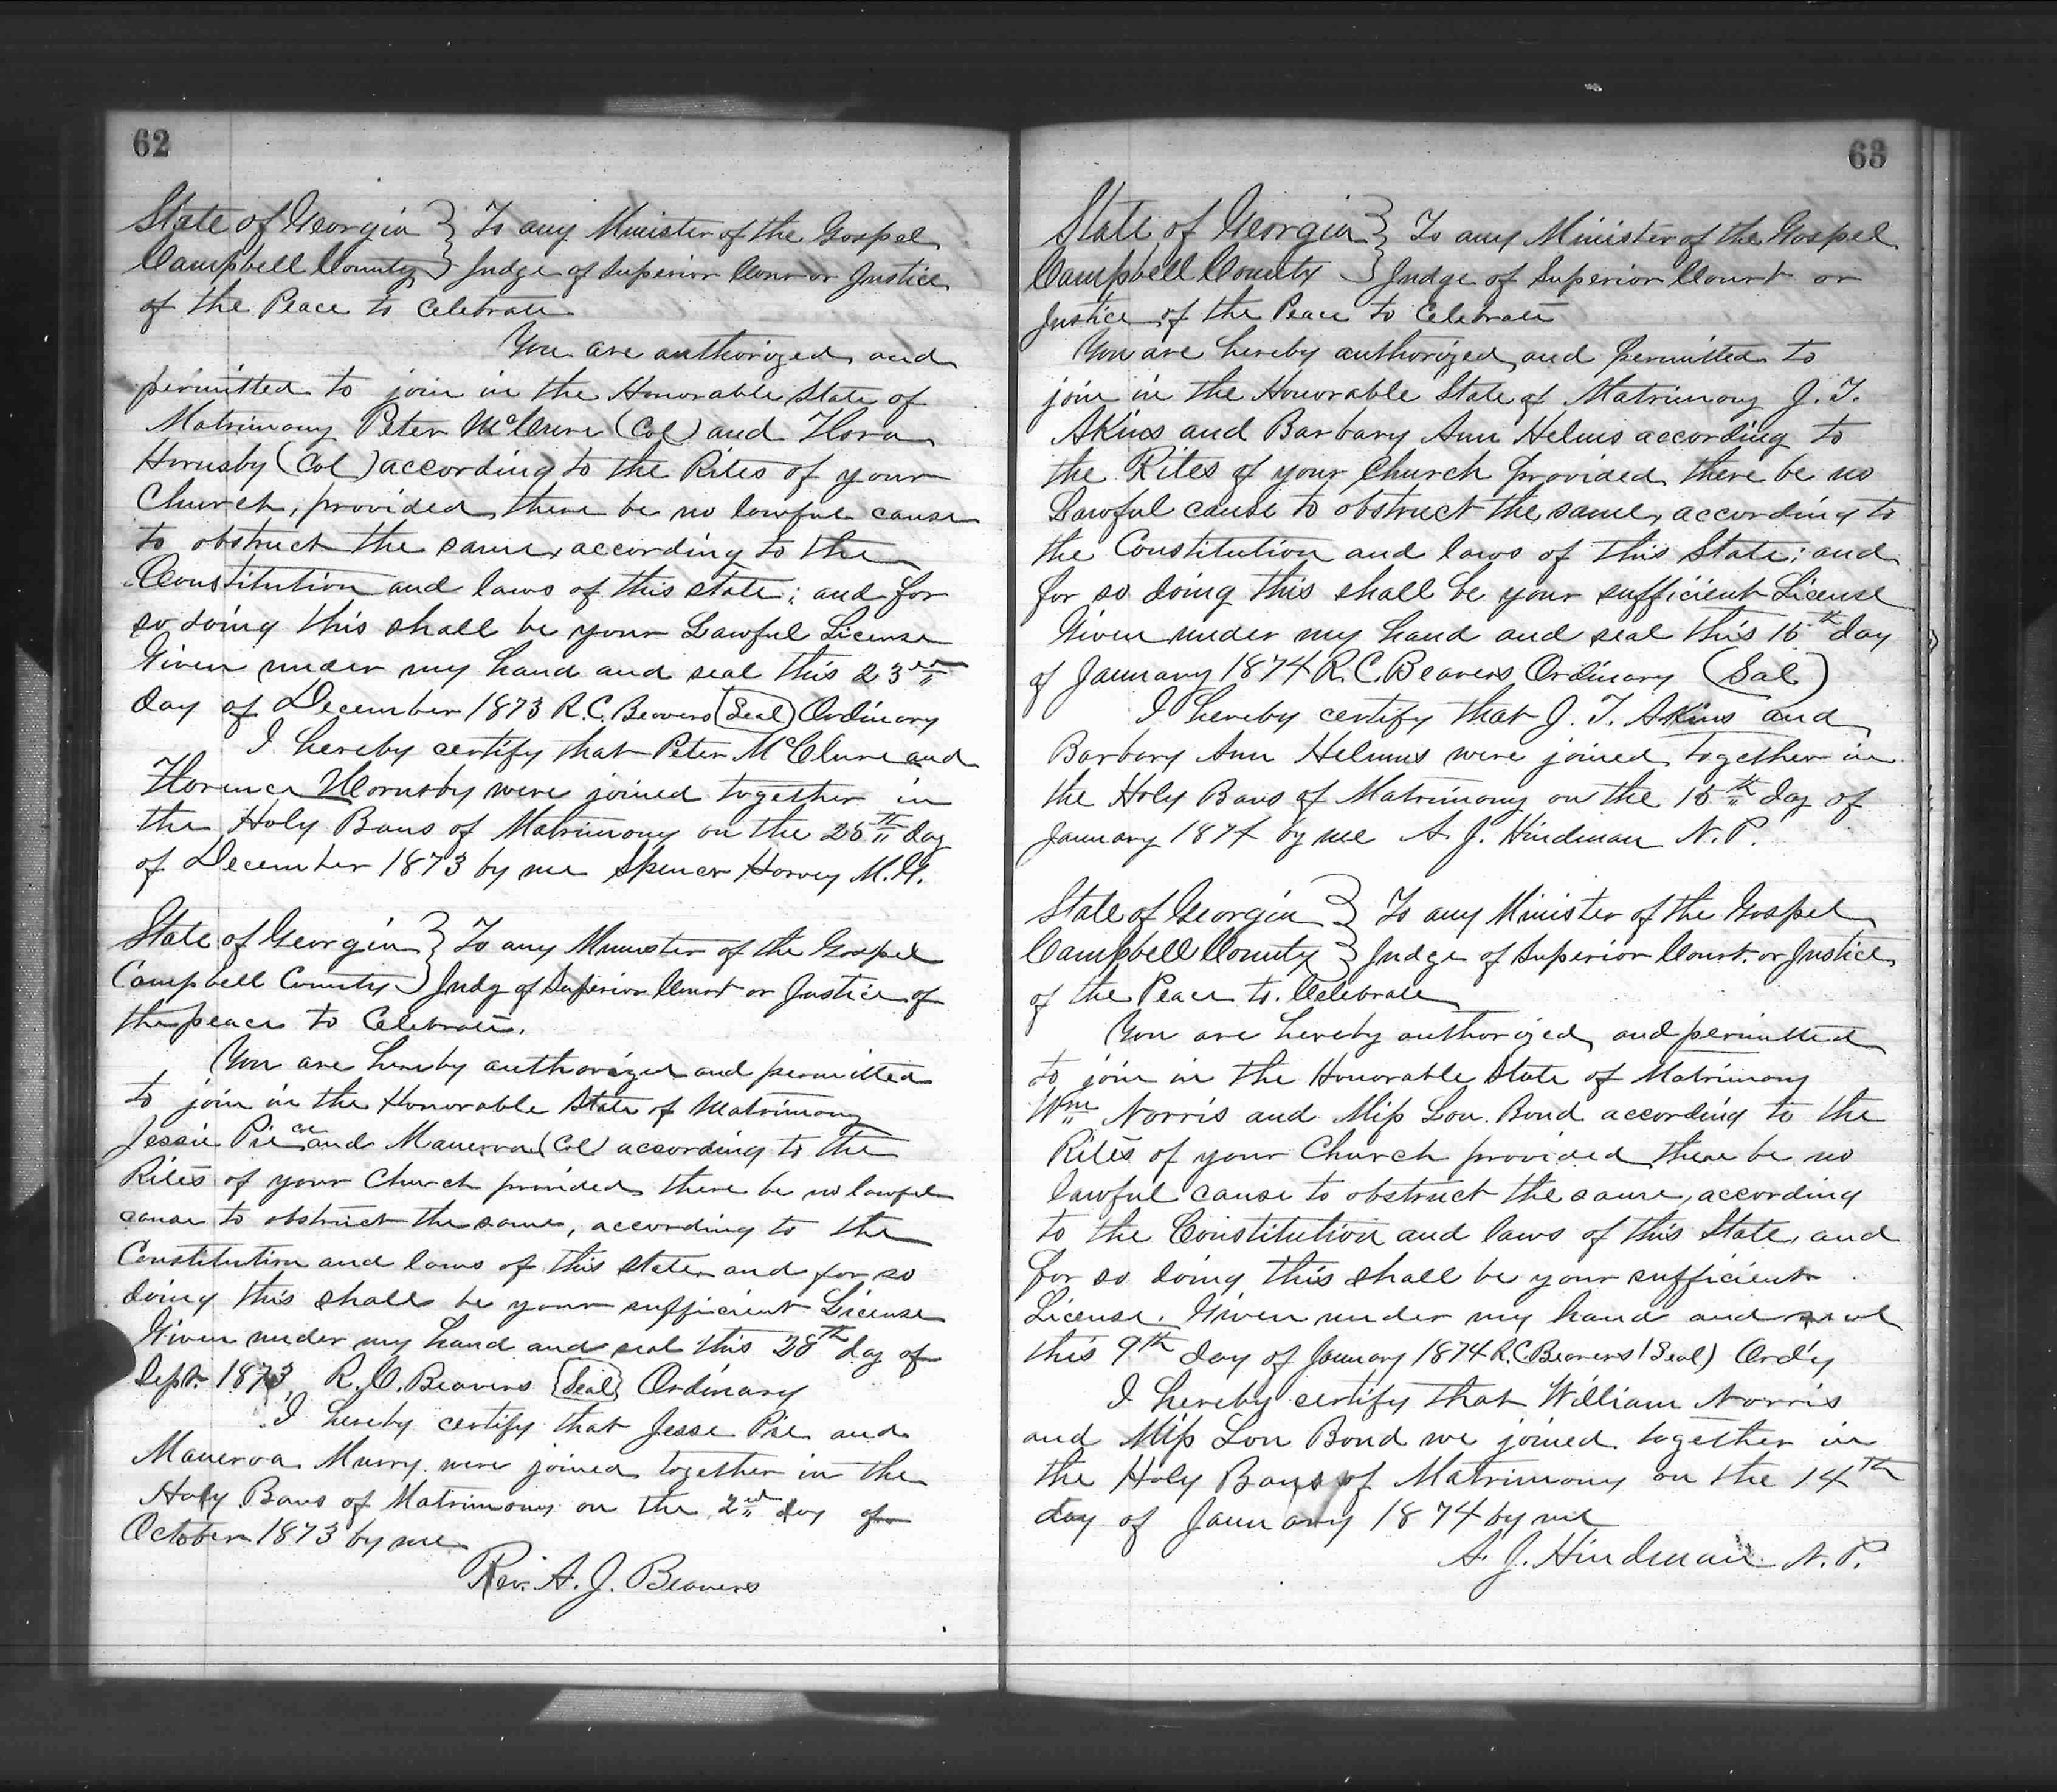 62
State of Georgia } To any Minister of the Gospel
Campbell County } Judge of Superior Cour or Justice
of the Peace to Celebrate
You are authorized and
permitted to join in the Honorable State of
Matrimony Peter McClure (Col) and Flora
Hornsby (Col) according to the Rites of your
Church, provided there be no lawful cause
to obstruct the same, according to the
Constitution and laws of this state; and for
so doing this shall be your Lawful License
Given under my hand and seal this 23rd
day of December 1873 R. C. Beavers (Seal) Ordinary
I hereby certify that Peter McClure and
Florence Hornsby were joined together in
the Holy Bans of Matrimony on the 25th day
of December 1873 by me Spencer Harvey M. G.
State of Georgia } To any Minister of the Gospel
Campbell County } Judg of Superior Court or Justice of
the peace to Celebrate.
You are hereby authorized and permitted
to join in the Honorable State of Matrimony
Jessie Pierce and Manerva (Col) according to the
Rites of your Church provided there be no lawful
cause to obstruct the same, according to the
Constitution and laws of this state and for so
doing this shall be your sufficient License
Given under my hand and seal this 28th day of
Sept. 1873, R. C. Beavers {Seal} Ordinary
I hereby certify that Jesse Pse and
Manerva Murry were joined together in the
Holy Bans of Matrimony on the 2nd day of
October 1873 by me
Rev. A. J. Beavers
63
State of Georgia } To any Minister of the Gospel
Campbell County } Judge of Superior Court or
Justice of the Peace to Celebrate
You are hereby authorized and permitted to
join in the Honorable State of Matrimony J. T.
Akins and Barbary Ann Helms according to
the Rites of your Church provided there be no
Lawful cause to obstruct the same, according to
the Constitution and laws of this State; and
for so doing this shall be your sufficient License
Given under my hand and seal this 15th day
of January 1874 R. C. Beavers Ordinary (Seal)
I hereby certify that J. T. Akins and
Barbary Ann Helmus were joined together in
the Holy Bans of Matrimony on the 15th day of
January 1874 by me A. J. Hindman N. P.
State of Georgia } To any Minister of the Gospel
Campbell County } Judge of Superior Court or Justice
of the Peace to Celebrate
You are hereby authorized and permitted
to join in the Honorable State of Matrimony
Wm Norris and Miss Lou Bond according to the
Rites of your Church provided there be no
lawful cause to obstruct the same, according
to the Constitution and laws of this State, and
for so doing this shall be your sufficient
License. Given under my hand and seal
this 9th day of January 1874 R. C. Beavers (Seal) Ord'y
I hereby certify that William Norris
and Miss Lou Bond we joined together in
the Holy Bans of Matrimony on the 14th
day of January 1874 by me
A. J. Hindman N. P.